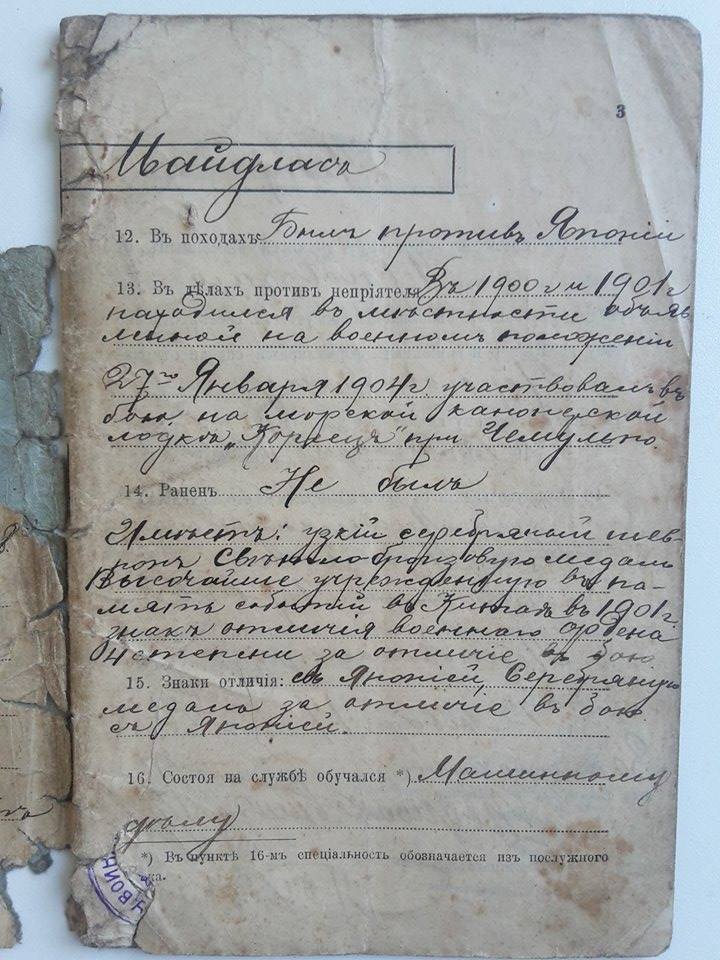 3
Майдласъ
12. Въ походахъ: Былъ противъ Японіи
13. Въ дѣлахъ противъ непріятеля Въ 1900 г и 1901 г
находился въ мѣстности объяв
ленной на военномъ положеніи
27го Января 1904 г. участвовалъ въ
бою на морской канонерской
лодкѣ „Кореецъ" при Чемульпо.
14. Раненъ Не былъ
Имѣетъ: узкій серебряный шев-
ронъ Свѣтлобронзовую медаль
Высочайше учрежденную въ па-
мять событій въ Китаѣ въ 1901 г.
знакъ отличія военнаго ордена
4 степени за отличіе въ бою
15. Знаки отличія: съ Японіей, Серебряную
медаль за отличіе въ бою
съ Японіей.
16. Состоя на службѣ обучался *) Машинному
дѣлу
*) Въ пунктѣ 16-мъ спеціальность обозначается изъ послужного
ка.
ВОИН